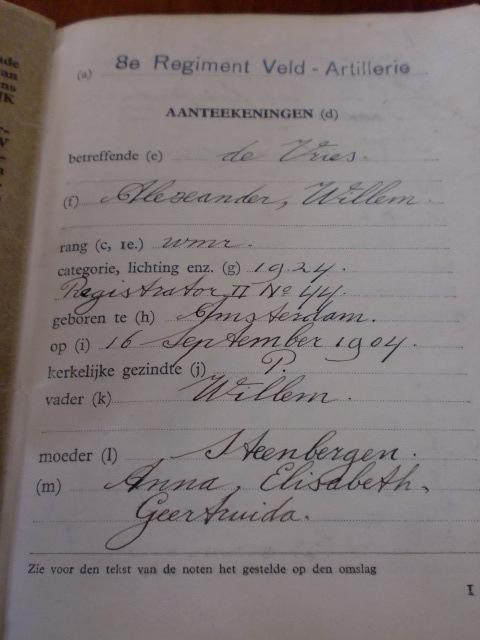 (a) 8e Regiment Veld-Artillerie
AANTEEKENINGEN (d)
betreffende (e) de Vries.
(f) Alexander, Willem.
rang (c, 1e.) wmr.
categorie, lichting enz. (g) 1924.
Registrator II No 44.
geboren te (h) Amsterdam.
op (i) 16 September 1904.
kerkelijke gezindte (j) P.
vader (k) Willem.
moeder (l) Steenbergen.
(m) Anna, Elisabeth,
Geertruida.
Zie voor den tekst van de noten het gestelde op den omslag
1